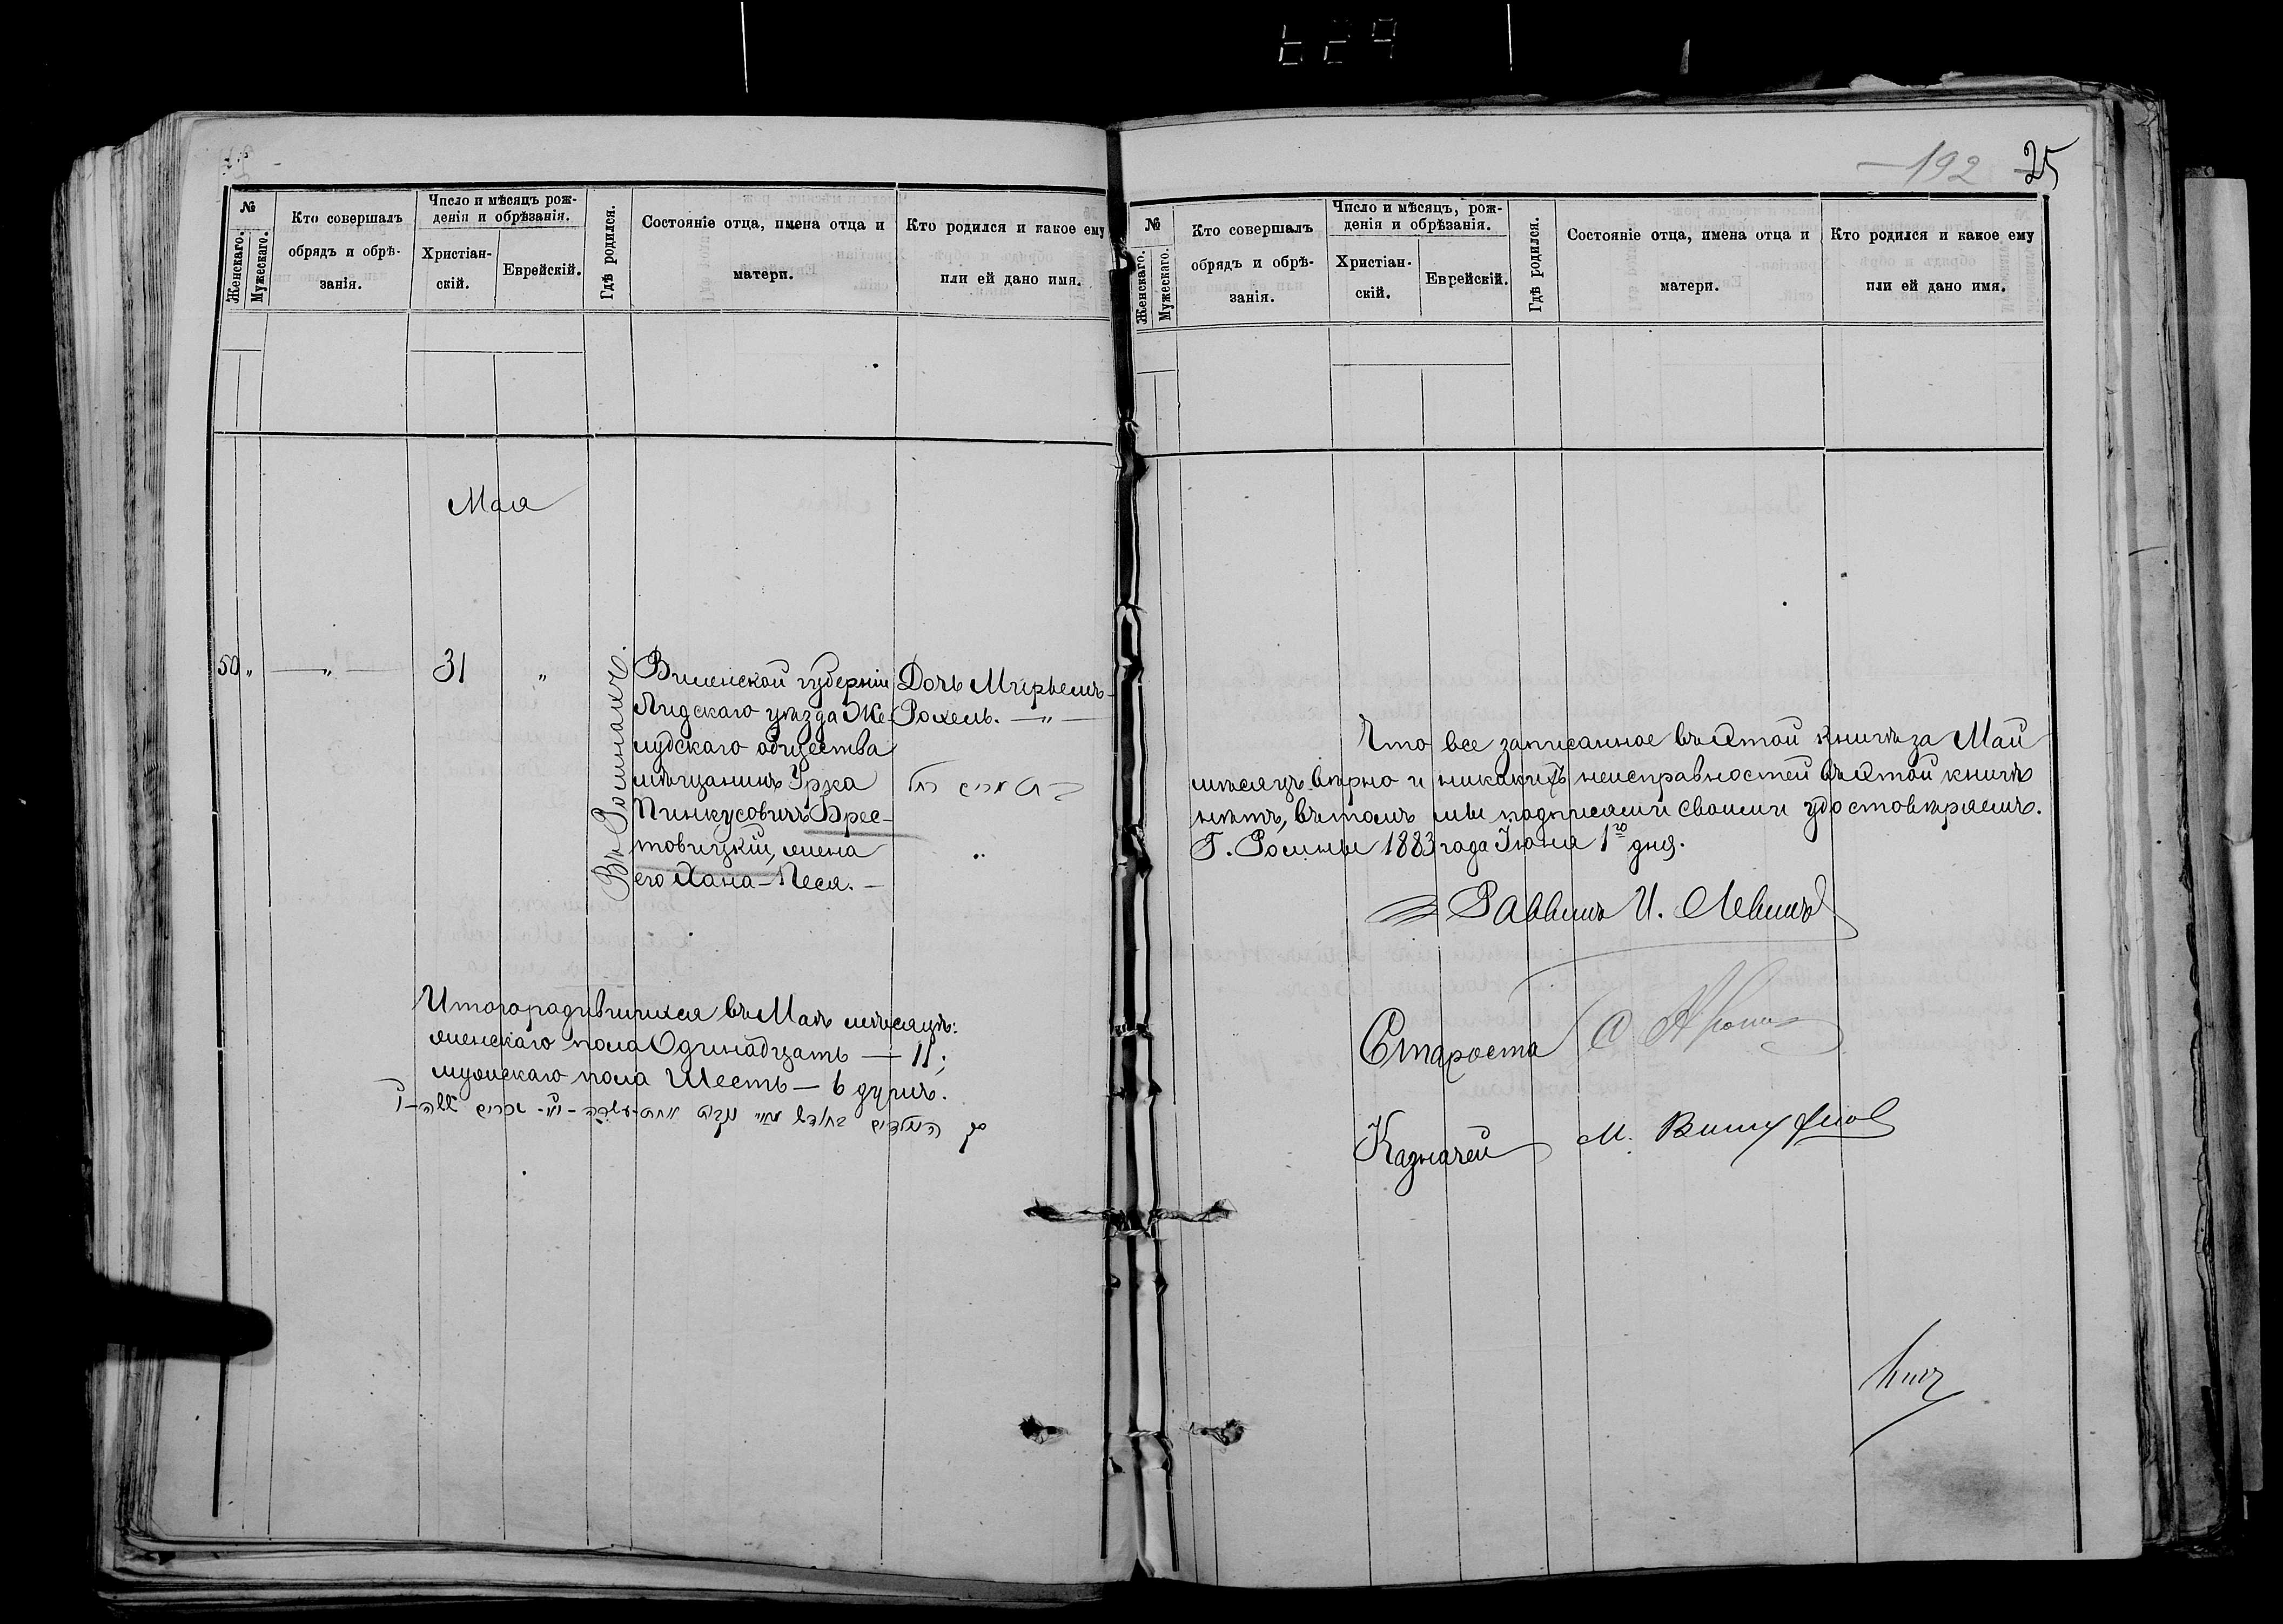 629
№
Женскаго.
Мужескаго.
Кто совершалъ
обрядъ и обрѣ-
занія.
Число и мѣсяцъ рож-
денія и обрѣзанія.
Христіан-
скій.
Еврейскій.
Гдѣ родился.
Состояніе отца, имена отца и
матери.
Кто родился и какое ему
или ей дано имя.
Мая
50 „ — „ — 31 „
Въ Россіенахъ.
Виленской губерніи
Лидскаго уѣзда Же-
лудскаго общества
мѣщанинъ Урка
Пинкусовичъ Брес-
товицкій, жена
его Хана-Песя. —
Дочь Мирьемъ-
Рохель. — „ —
Итого родившихся въ Маѣ мѣсяцѣ:
женскаго пола Одинадцать — 11;
мужскаго пола Шесть — 6 душъ.
— 192
25
№
Женскаго.
Мужескаго.
Кто совершалъ
обрядъ и обрѣ-
занія.
Число и мѣсяцъ, рож-
денія и обрѣзанія.
Христіан-
скій.
Еврейскій.
Гдѣ родился.
Состояніе отца, имена отца и
матери.
Кто родился и какое ему
или ей дано имя.
Что все записанное въ этой книгѣ за Май
мѣсяцъ вѣрно и никакихъ неисправностей въ этой книгѣ
нѣтъ, въ томъ мы подписями своими удостовѣряемъ.
Г. 1883 года Іюня 1го дня.
Раввинъ И. Левинъ
Староста
Казначей М.